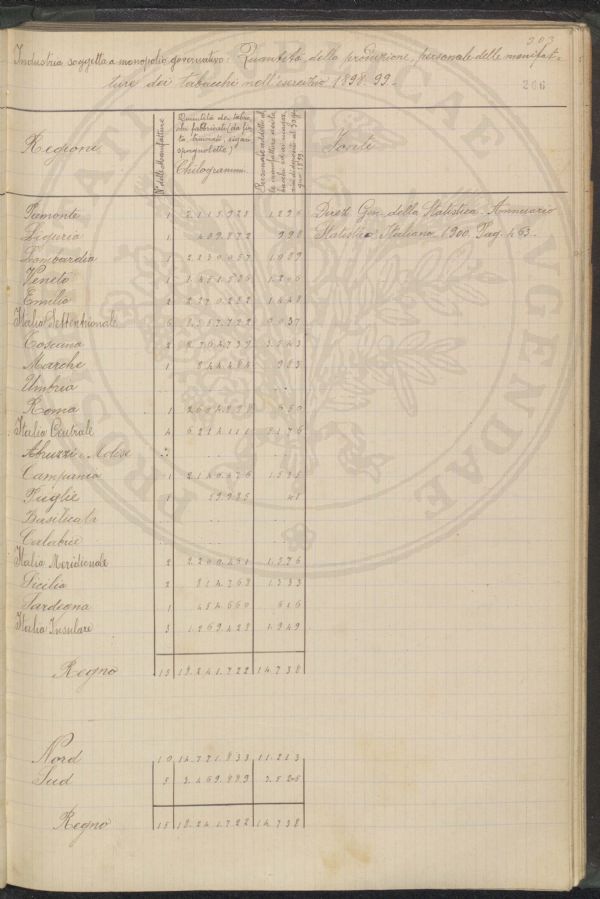 303
Industria soggetta a monopolio governativo: Quantità della produzione, personale delle manifat-
ture dei tabacchi nell'esercizio 1898-99.
266
Regioni
N. delle Manifatture
Quantità dei tabac-
chi fabbricati (da fiu-
to, trinciati, sigari
spagnolette)
Chilogrammi.
Personale addetto al-
le manifatture
giugno 1899
Fonti
Piemonte 1 2.115.928 1.896 Direz. Gen. della Statistica - Annuario
Liguria 1 489.872 998 Statistico Italiano 1900. Pag. 463.
Lombardia 1 2.130.057 1.989
Veneto 1 1.481.586 1.206
Emilia 2 2.290.282 1.648
Italia Settentrionale 6 7.037
Toscana 2 2.764.739 2.843
Marche 1 844.484 983
Umbria .. .. ..
Roma 1 2.604.888 350
Italia Centrale 4 6.214.111 4.176
Abruzzi e Molise .. .. ..
Campania 1 2.140.476 1.535
Puglie 1 59.985 41
Basilicata .. .. ..
Calabrie .. .. ..
Italia Meridionale 2 2.200.461 1.576
Sicilia 2 814.768 1.333
Sardegna 1 454.660 616
Italia Insulare 3 1.269.428 1.949
Regno 15 18.241.722 14.738
Nord 10 14.771.833 11.213
Sud 5 3.469.889 3.525
Regno 15 18.241.722 14.738
PROSPERITATI PUBLICAE AUGENDAE